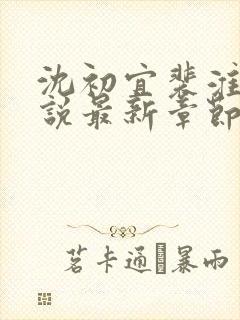 沈初宜裴淮
說最新章節
茗卡通 暴雨